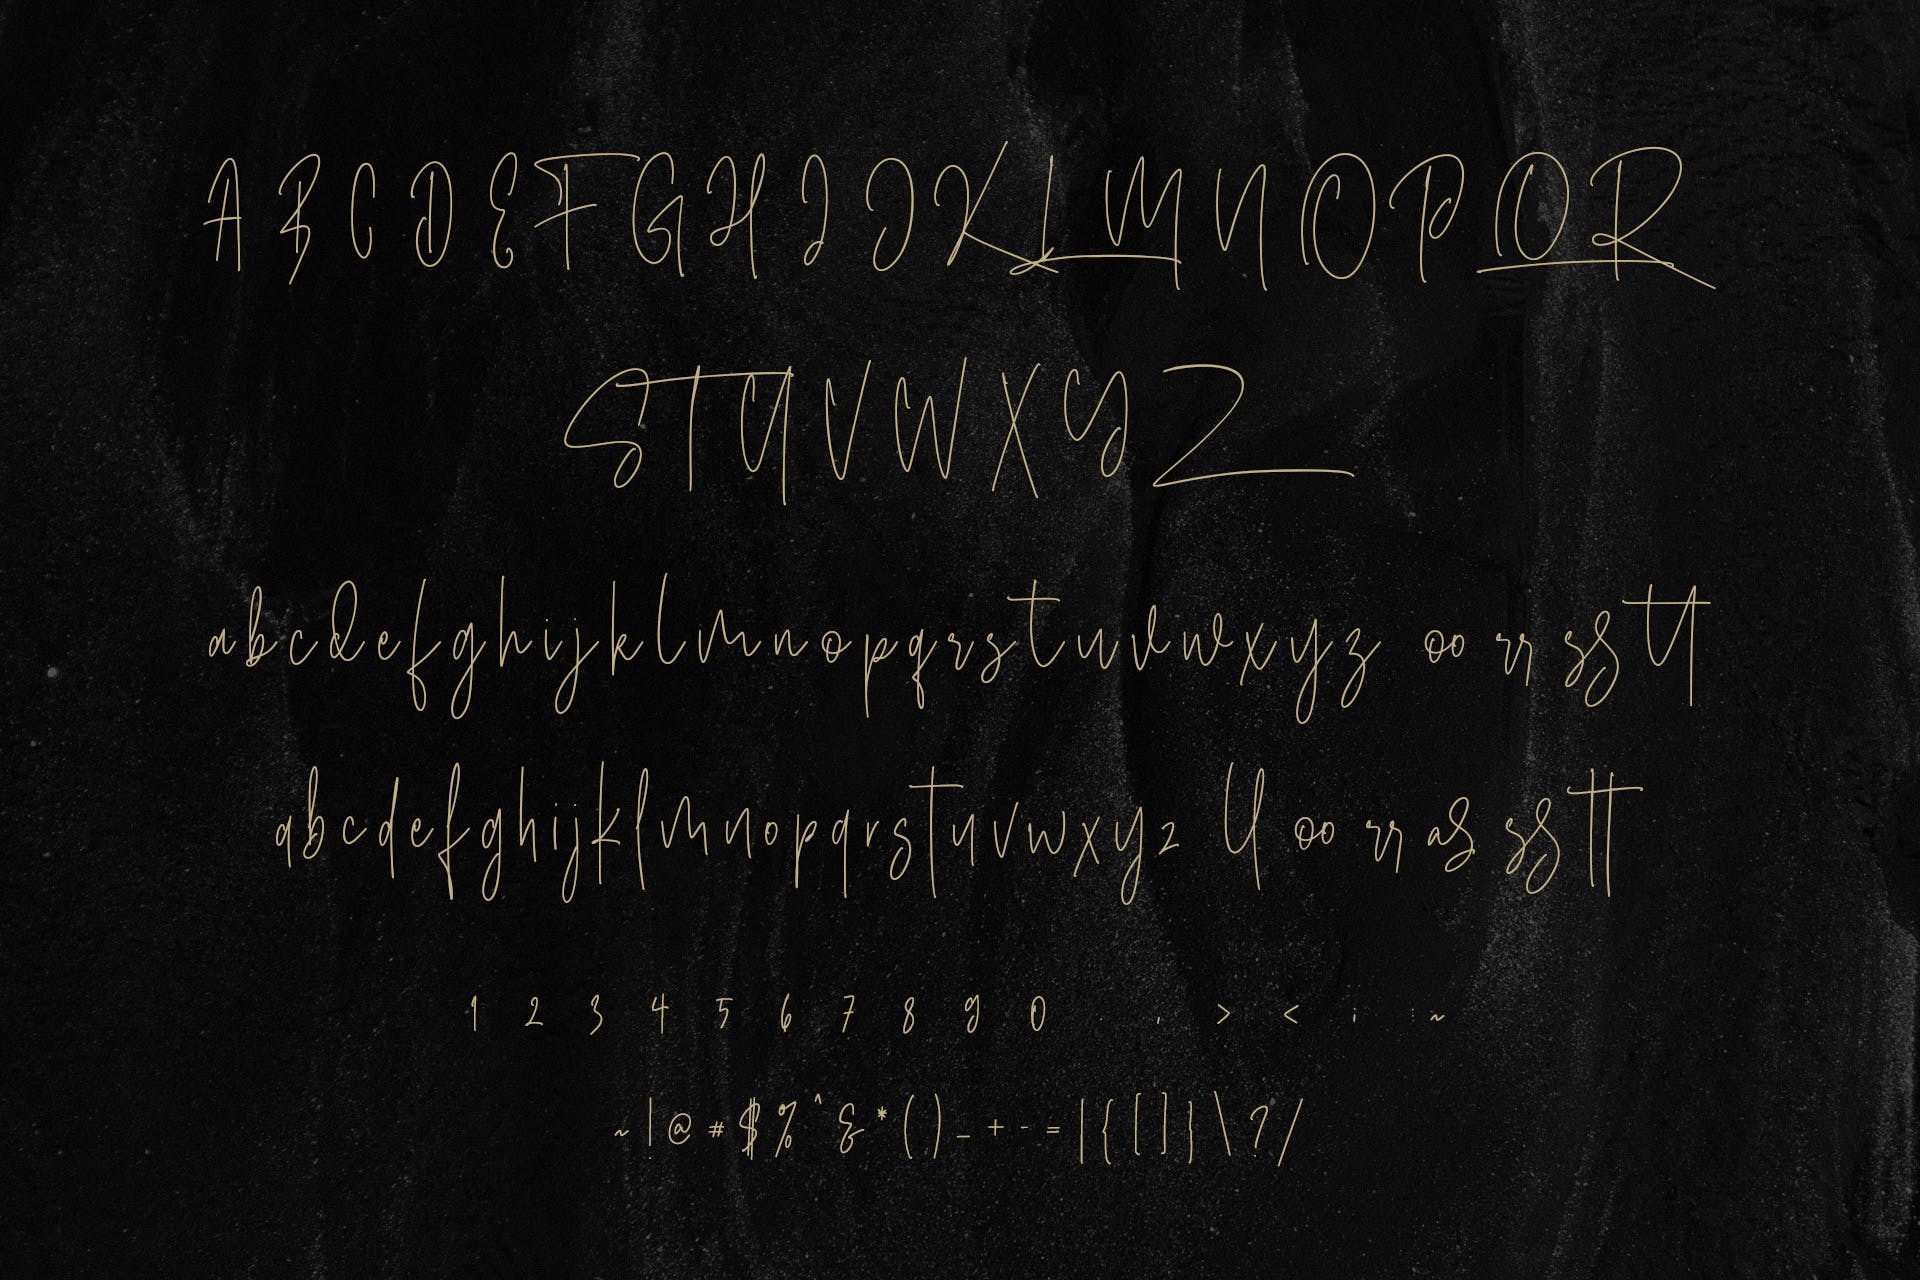 A B C D E F G H I J K L M N O P Q R
S T U V W X Y Z
a b c d e f g h i j k l m n o p q r s t u v w x y z oo rr ss tt
a b c d e f g h i j k l m n o p q r s t u v w x y z ll oo rr as ss tt
1 2 3 4 5 6 7 8 9 0 . , > < ; : ~
~ ! @ # $ % ^ & * ( ) _ + - = | { [ ] } \ ? /